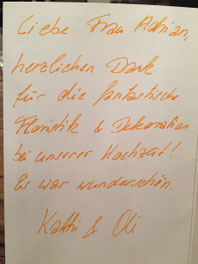 Liebe Frau Adrian,
herzlichen Dank
für die fantastische
Floristik & Dekoration
bei unserer Hochzeit!
Es war wunderschön.
Kathi & Oli